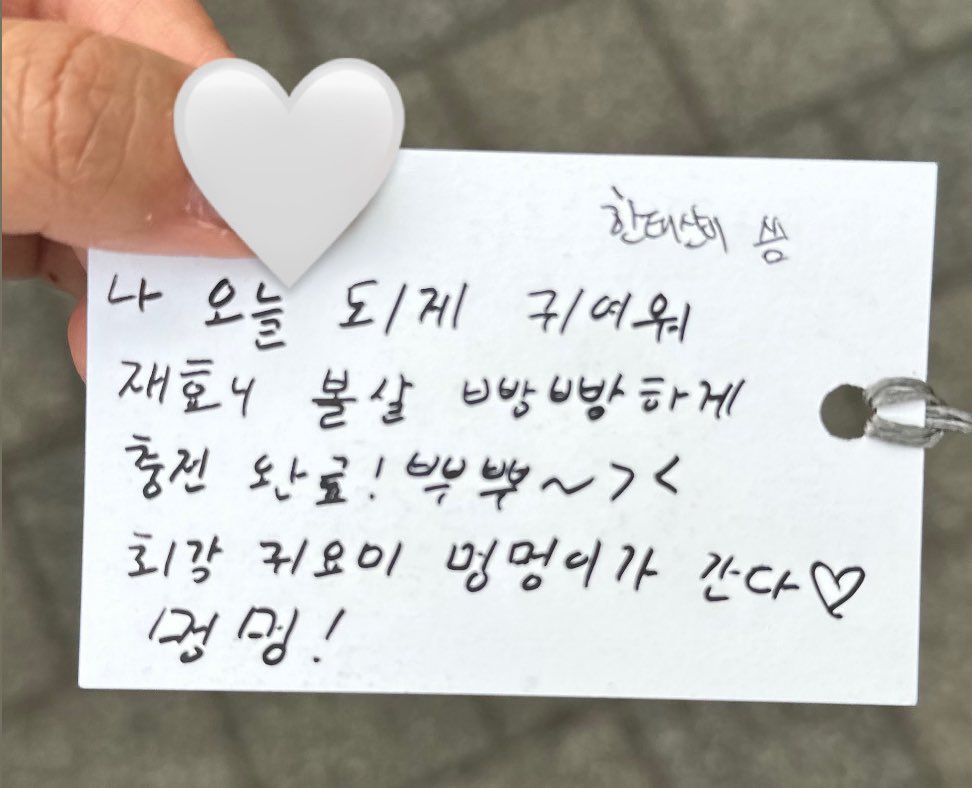 한태산이 씀
나 오늘 되게 귀여워
재효니 볼살 빵빵하게
충전 완료! 뿌뿌~><
회각 귀요미 멍멍이가 간다♡
멍멍!